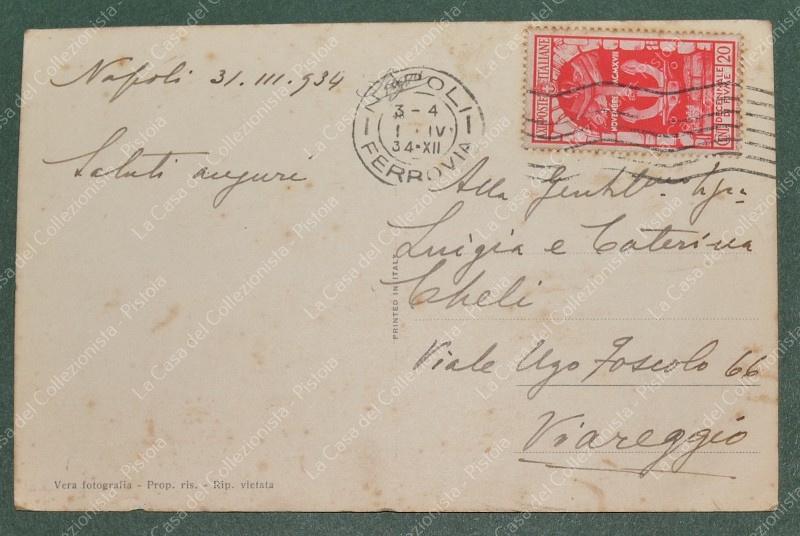 Napoli 31.III.934
Saluti auguri
NAPOLI
3-4
1 IV
34·XII
FERROVIA
POSTE ITALIANE
NOVEMBRE
DECENNALE
DI FIUME
20
Alla Gentil
Luigia e Caterina
Cheli
Viale Ugo Foscolo 66
Viareggio
PRINTED IN ITALY
Vera fotografia - Prop. ris. - Rip. vietata
La Casa del Collezionista - Pistoia